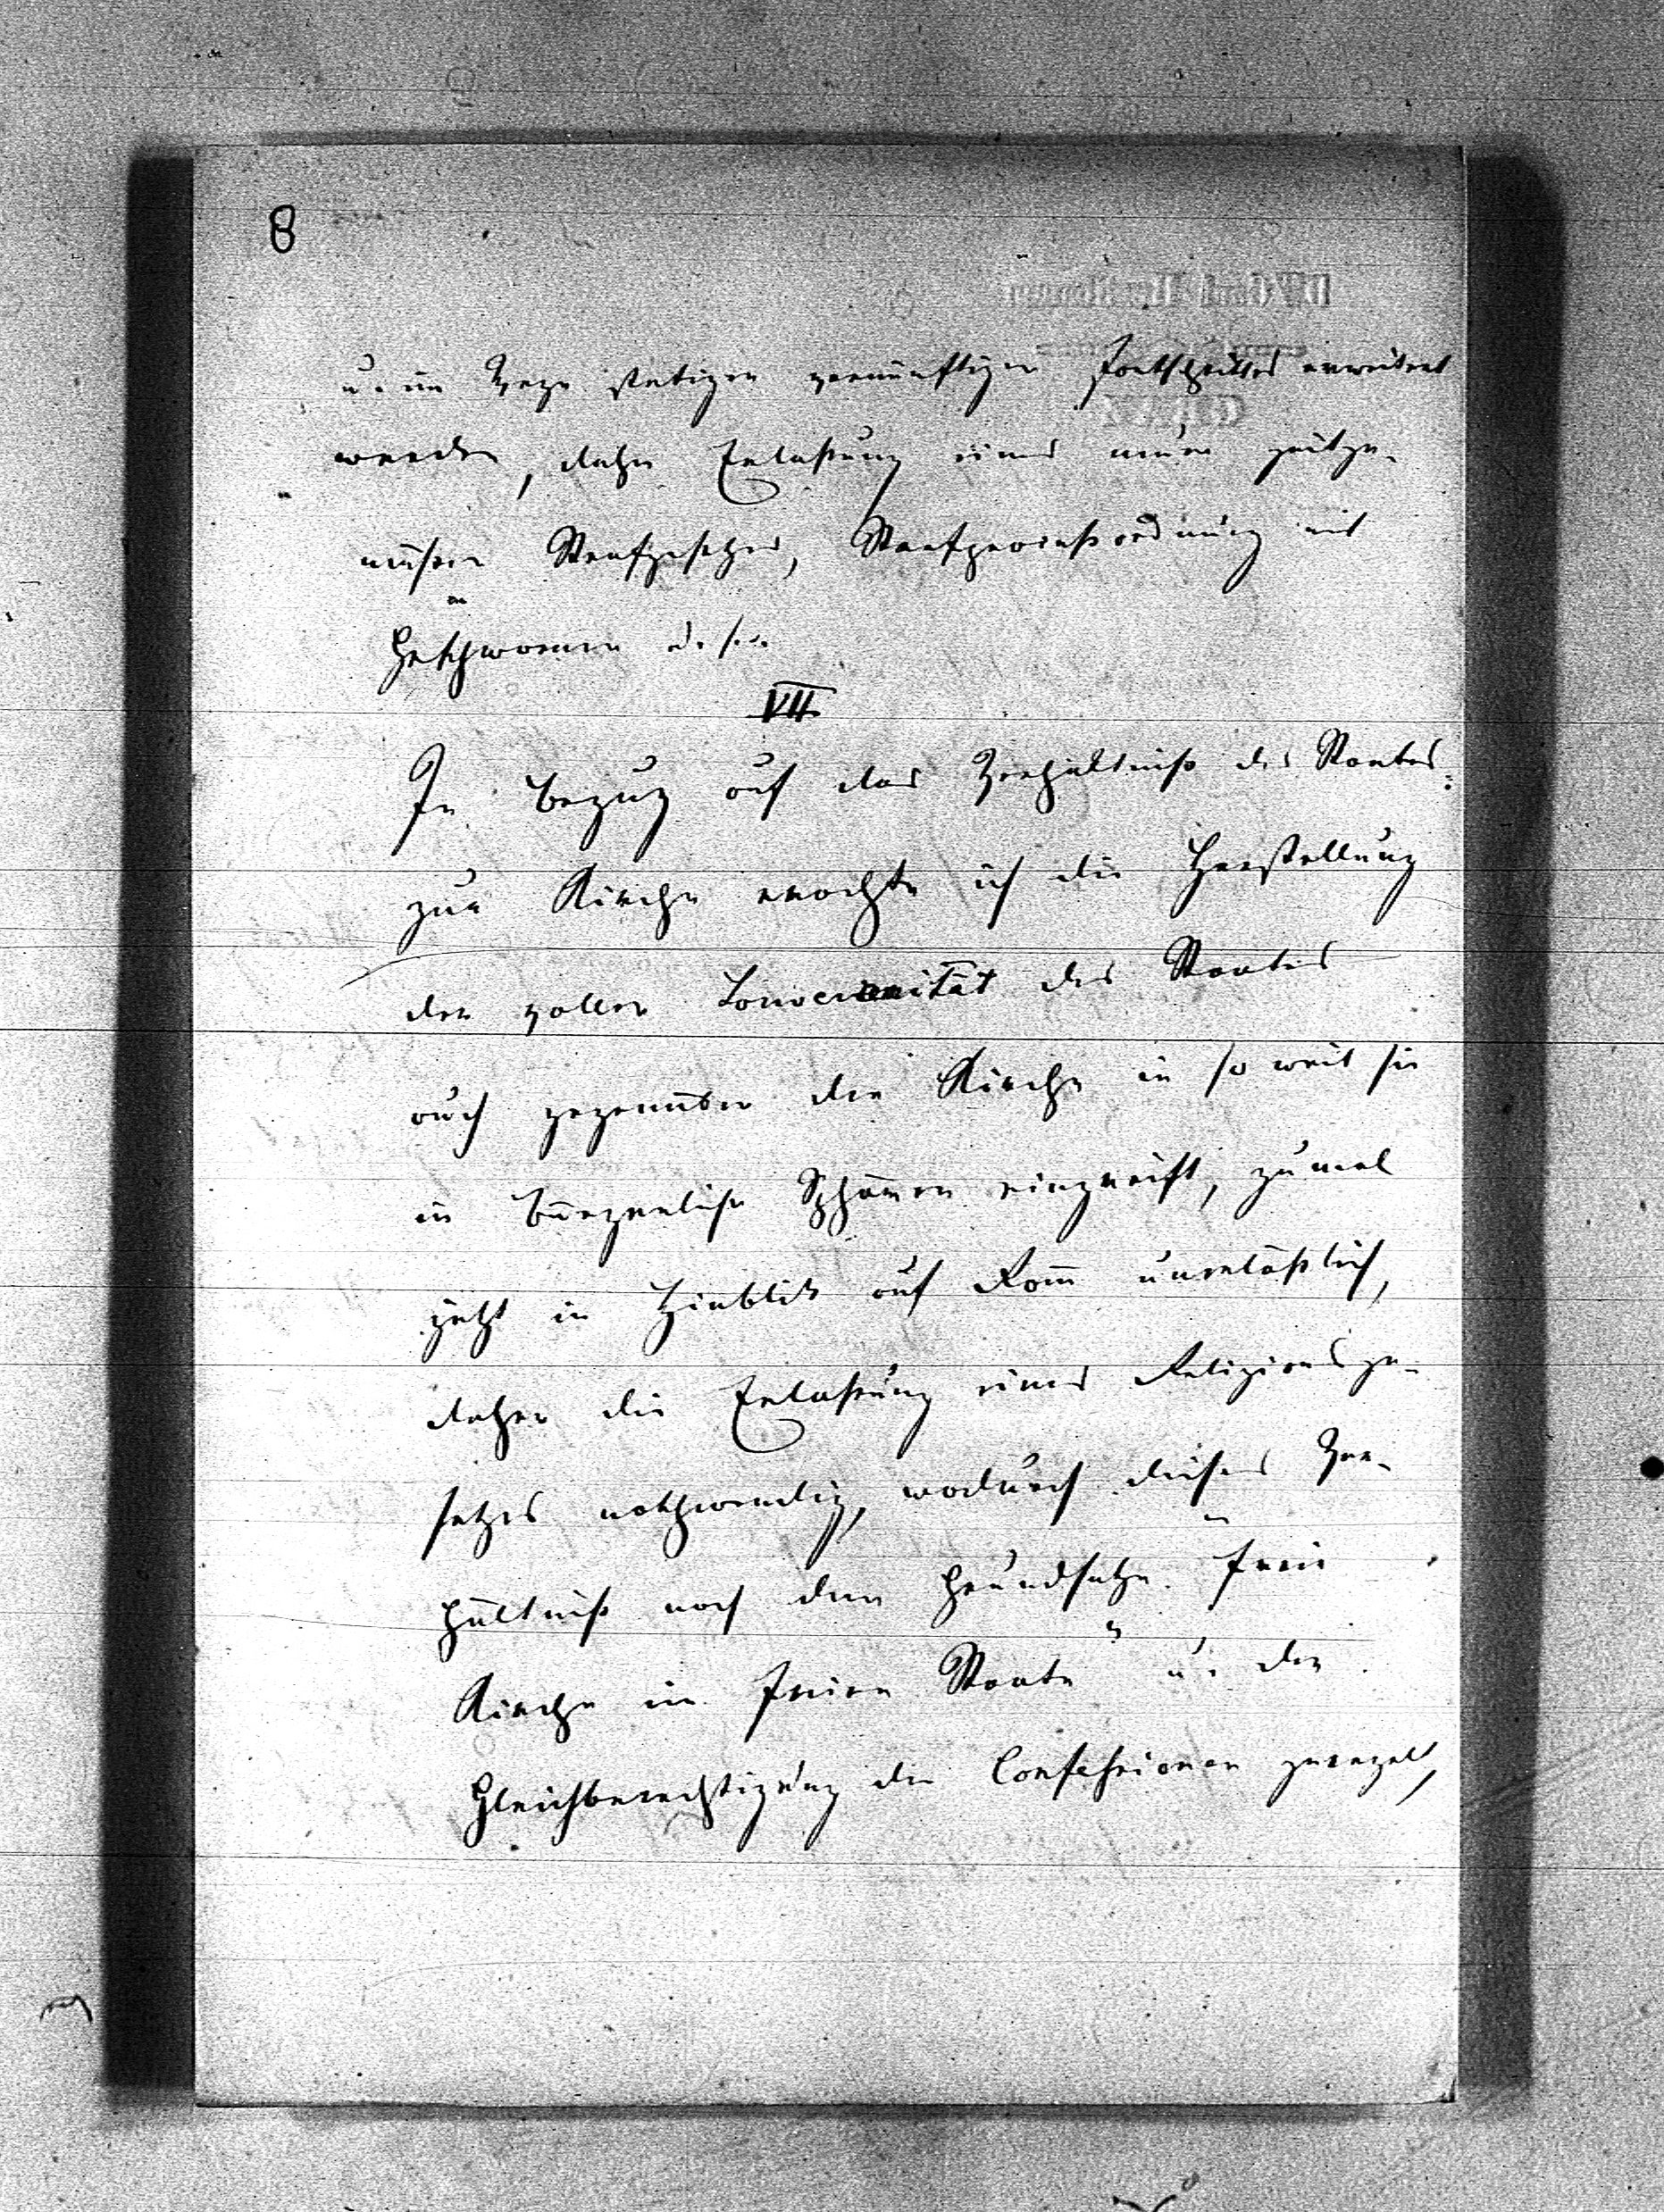 8
u. im Wege stetigen vernünftigen Fortschrittes erweitert
werden, daher Erlaßung eines neuen zeitge-
mäßen Strafgesetzes, Strafprozeßordnung mit
Geschwornen
VII
In Bezug auf das Verhältniß des Staates
zur Kirche erachte ich die Herstellung
der vollen Souverainität des Staates
auch gegenüber der Kirche in so weit sie
in bürgerliche Sphären eingreift, zumal
jetzt in Hinblick auf Rom unerläßlich,
daher die Erlaßung eines Religionsge-
setzes nothwendig, wodurch dieses Ver-
hältniß nach dem Grundsatze „freie
Kirche im freien Staate“ u. der
Gleichberechtigung der Confessionen geregelt,